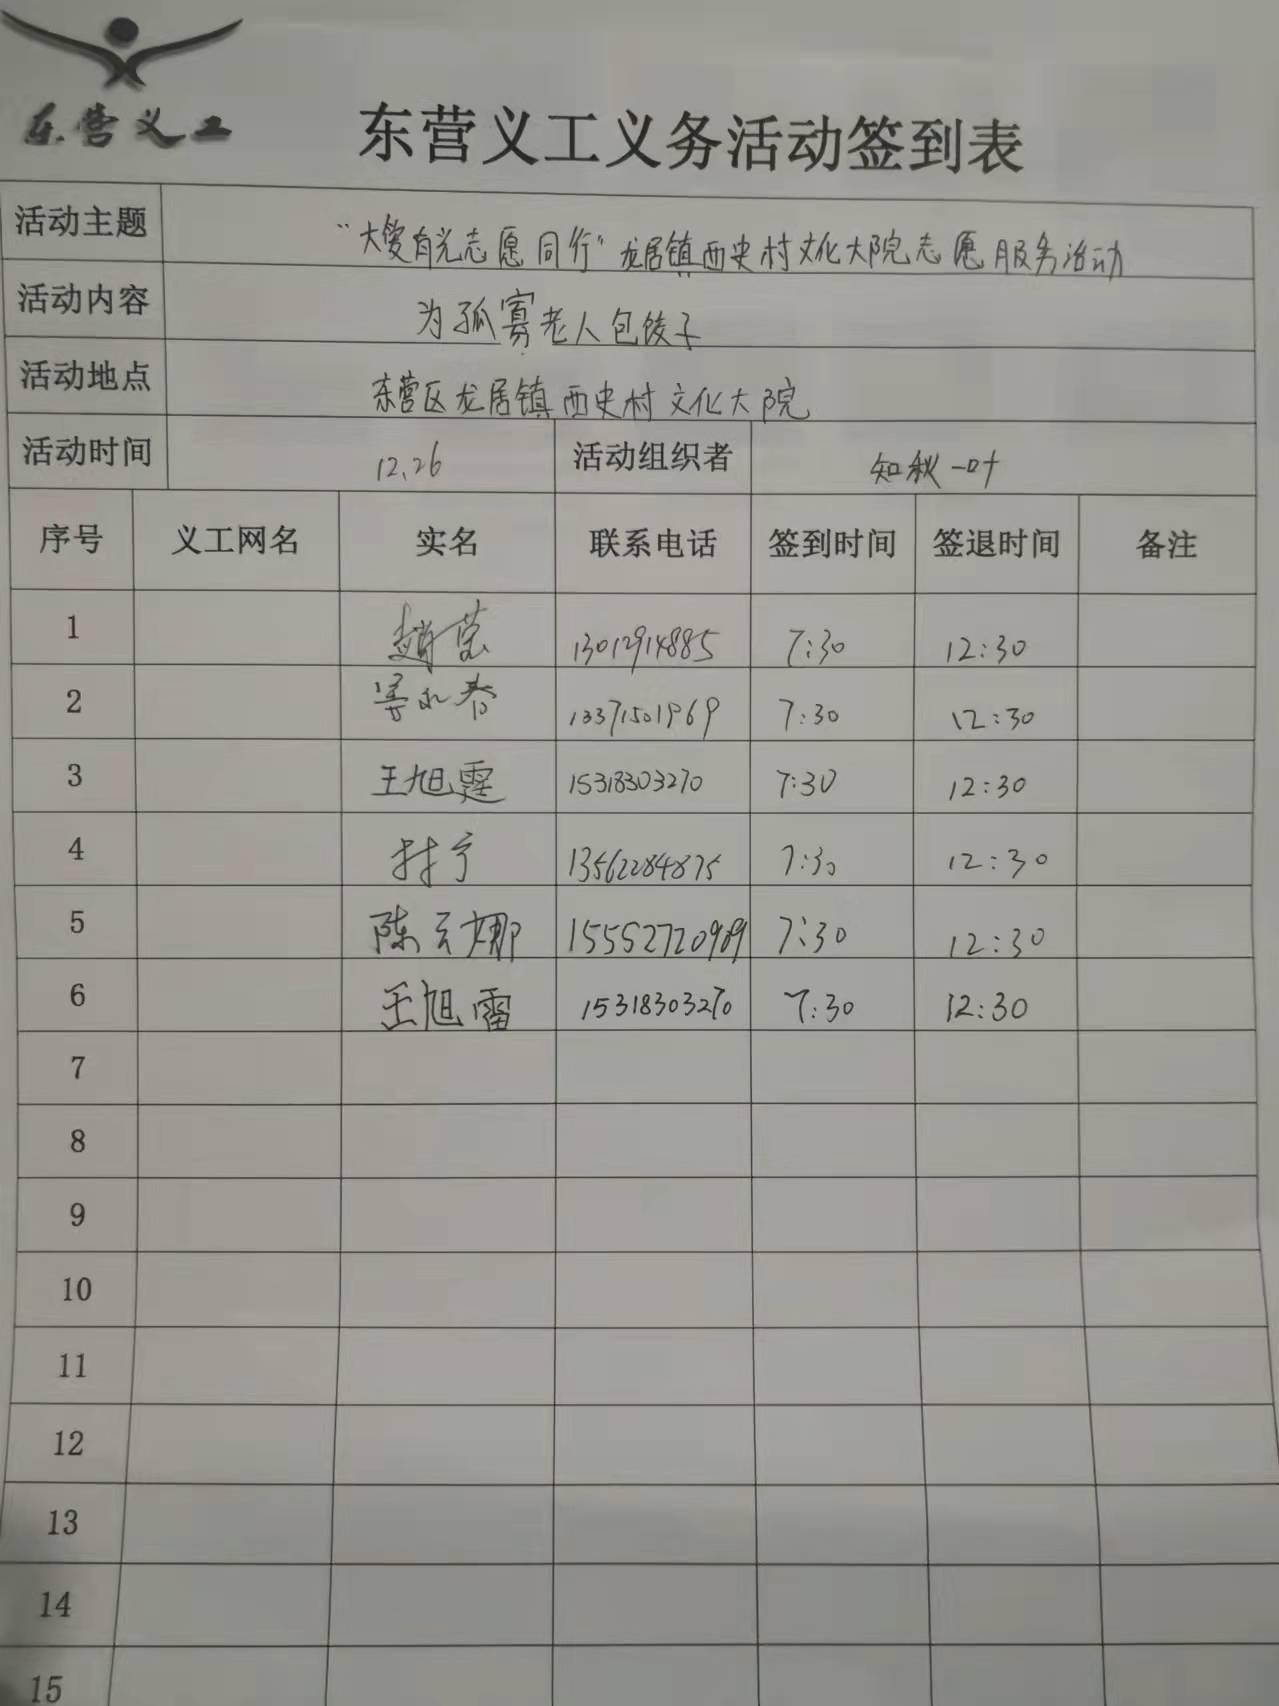 东营义工
东营义工义务活动签到表
活动主题 “大爱有光志愿同行”龙居镇西史村文化大院志愿服务活动
活动内容 为孤寡老人包饺子
活动地点 东营区龙居镇西史村文化大院
活动时间 12.26 活动组织者 知秋一叶
序号 义工网名 实名 联系电话 签到时间 签退时间 备注
1 赵营 13012914885 7:30 12:30
2 春 13371501969 7:30 12:30
3 王旭霆 15318303270 7:30 12:30
4 13562284875 7:30 12:30
5 陈云娜 15552720989 7:30 12:30
6 王旭雷 15318303270 7:30 12:30
7
8
9
10
11
12
13
14
15